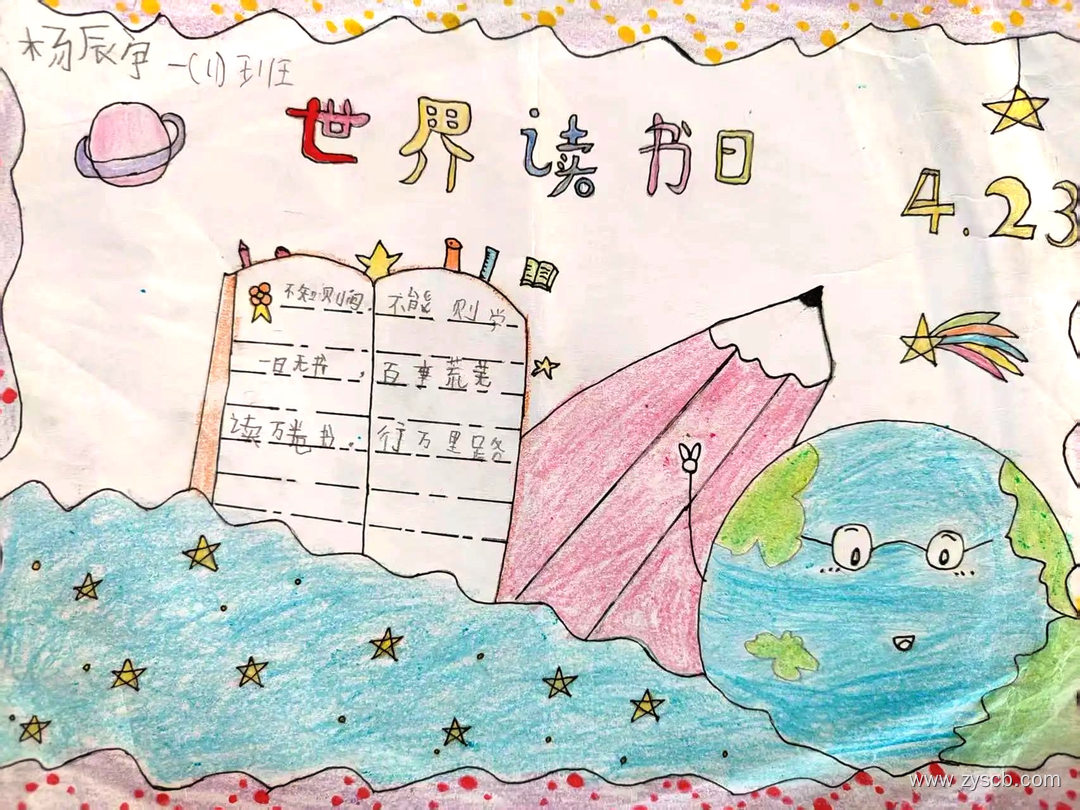 杨辰
一(1)班
世界读书日
4.23
不知则问，不能则学
一日无书，百事荒芜
读万卷书，行万里路
www.zyscb.com